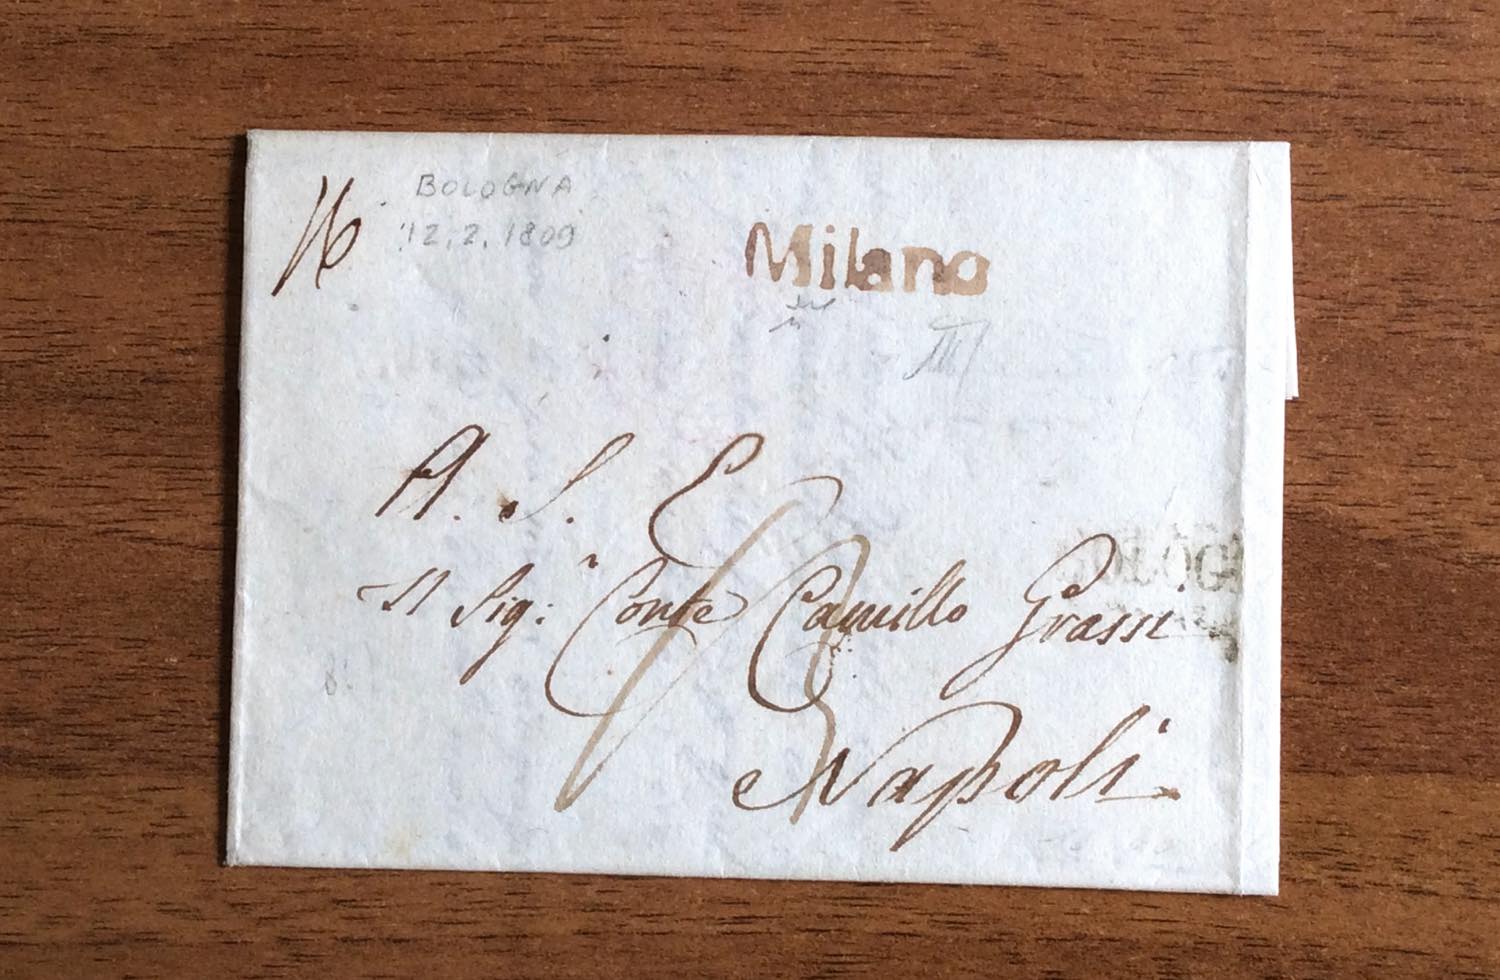 16
BOLOGNA
12.2.1809
Milano
A. S. E.
Il Sig:r Conte Camillo Grassi
Napoli